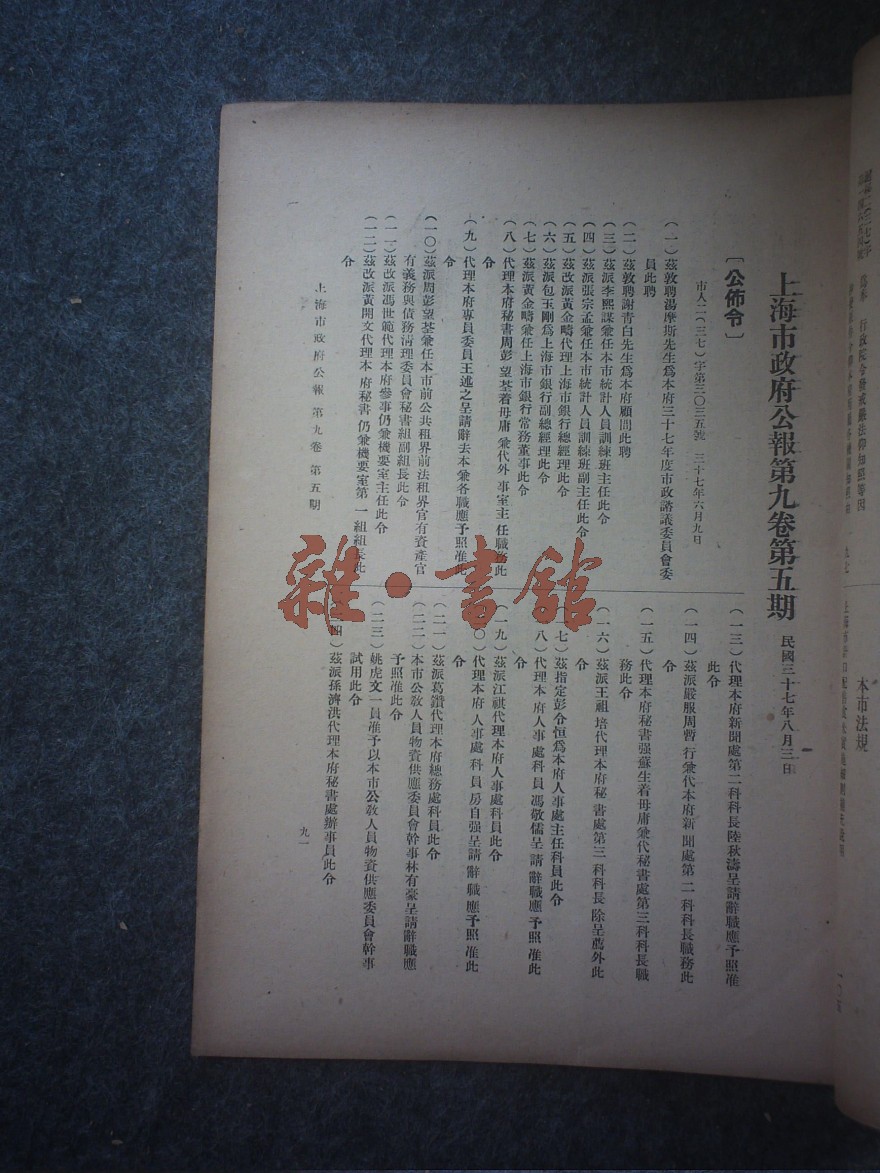 上海市政府公報第九卷第五期
民國三十七年八月三日
〔公佈令〕
市人二(三七)字第三〇三五號 三十七年六月九日
(一)茲敦聘湯摩斯先生爲本府三十七年度市政諮議委員會委
員此聘
(二)茲敦聘謝青白先生爲本府顧問此聘
(三)茲派李熙謀兼任本市統計人員訓練班主任此令
(四)茲派張宗孟兼任本市統計人員訓練班副主任此令
(五)茲改派黃金疇代理上海市銀行總經理此令
(六)茲派包玉剛爲上海市銀行副總經理此令
(七)茲派黃金疇兼任上海市銀行常務董事此令
(八)代理本府秘書周彭望荃着毋庸兼代外事室主任職務此
令
(九)代理本府專員委員王述之呈請辭去本兼各職應予照准此
令
(一〇)茲派周彭望荃兼任本市前公共租界前法租界官有資產官
有義務與債務清理委員會秘書組副組長此令
(一一)茲改派馮世範代理本府參事仍兼機要室主任此令
(一二)茲改派黃開文代理本府秘書仍兼機要室第一組組長此
令
(一三)代理本府新聞處第二科科長陸秋濤呈請辭職應予照准
此令
(一四)茲派嚴服周暫行兼代本府新聞處第二科科長職務此
令
(一五)代理本府秘書强蘇生着毋庸兼代秘書處第三科科長職
務此令
(一六)茲派王祖培代理本府秘書處第三科科長除呈薦外此
令
七)茲指定彭令恒爲本府人事處主任科員此令
八)代理本府人事處科員馮敬儒呈請辭職應予照准此
令
一九)茲派江祺代理本府人事處科員此令
〇)代理本府人事處科員房自强呈請辭職應予照准此
令
(二一)茲派葛鑽代理本府總務處科員此令
(二二)本市公教人員物資供應委員會幹事林有豪呈請辭職應
予照准此令
(二三)姚虎文一員准予以本市公教人員物資供應委員會幹事
試用此令
四)茲派孫濟洪代理本府秘書處辦事員此令
上海市政府公報 第九卷 第五期
九一
雜·書館
本市法規
爲奉 行政院令發戒嚴法仰知照等因